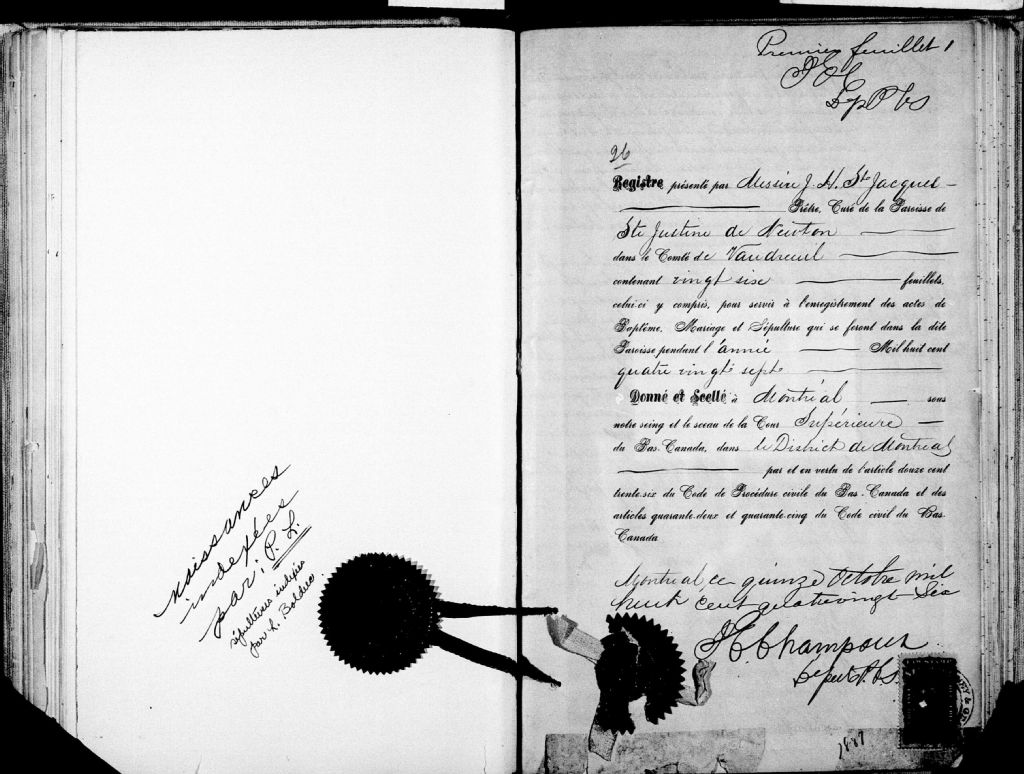 naissances
indexées
par: P. L.
sépultures indexées
par L. Bolduc
Premier feuillet 1
26
Registre présenté par Messire J. H. Ste Jacques
Prêtre, Curé de la Paroisse de
Ste Justine de Newton
dans le Comté de Vaudreuil
contenant vingt six feuillets,
celui-ci y compris, pour servir à l'enregistrement des actes de
Baptême, Mariage et Sépulture qui se feront dans la dite
Paroisse pendant l'année Mil huit cent
quatre vingt sept
Donné et Scellé à Montréal sous
notre seing et le sceau de la Cour Supérieure
du Bas-Canada, dans le District de Montréal
par et en vertu de l'article douze cent
trente-six du Code de Procédure civile du Bas-Canada et des
articles quarante-deux et quarante-cinq du Code civil du Bas-
Canada
Montreal ce quinze Octobre mil
huit cent quatrevingt six
Champoux
1887